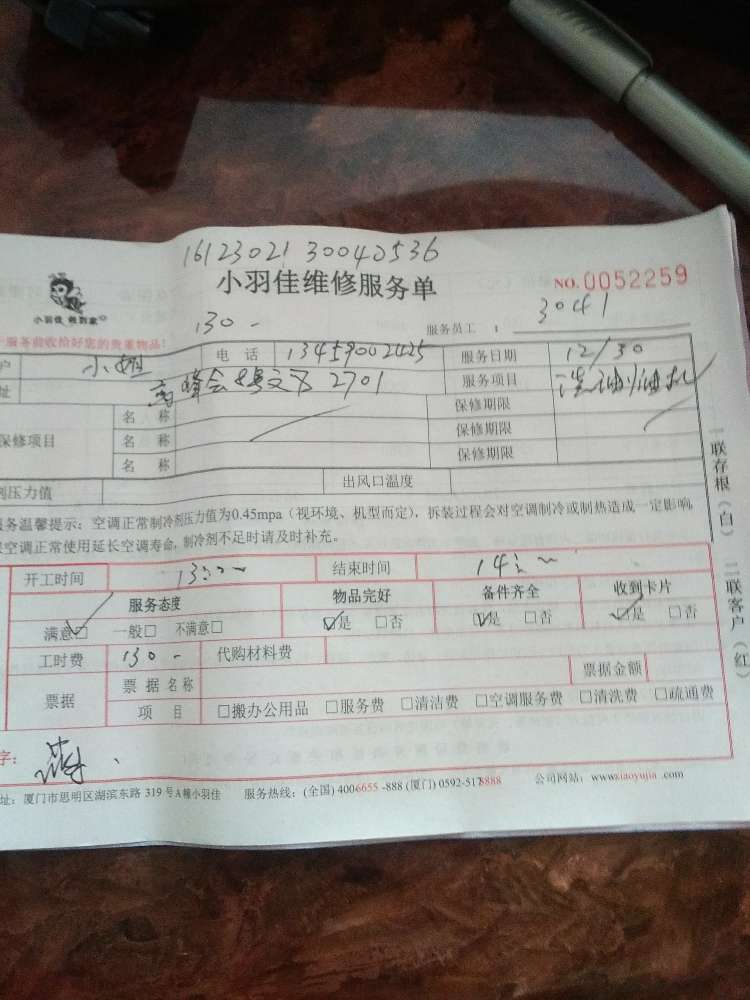 1612302130042536
小羽佳维修服务单 NO.0052259
小羽佳 帮到家
130 - 服务员工： 3041
服务验收恰好您的贵重物品!
户 小姐 电话 13459002425 服务日期 12/30
址 2701 服务项目 洗油烟机
名称 保修期限
保修项目 名称 保修期限
名称 保修期限
剂压力值 出风口温度
服务温馨提示：空调正常制冷剂压力值为0.45mpa（视环境、机型而定），拆装过程会对空调制冷或制热造成一定影响，
空调正常使用延长空调寿命，制冷剂不足时请及时补充。
开工时间 13: 结束时间 14:
服务态度 物品完好 备件齐全 收到卡片
满意☑ 一般□ 不满意□ ☑是 □否 ☑是 □否 ☑是 □否
工时费 130 - 代购材料费
票据 票据名称 票据金额
项目 □搬办公用品 □服务费 □清洁费 □空调服务费 □清洗费 □疏通费
字：
址：厦门市思明区湖滨东路 319 号A幢小羽佳 服务热线：(全国) 4006655 -888 (厦门) 0592-5178888 公司网站：www.xiaoyujia .com
一联存根（白） 二联客户（红）